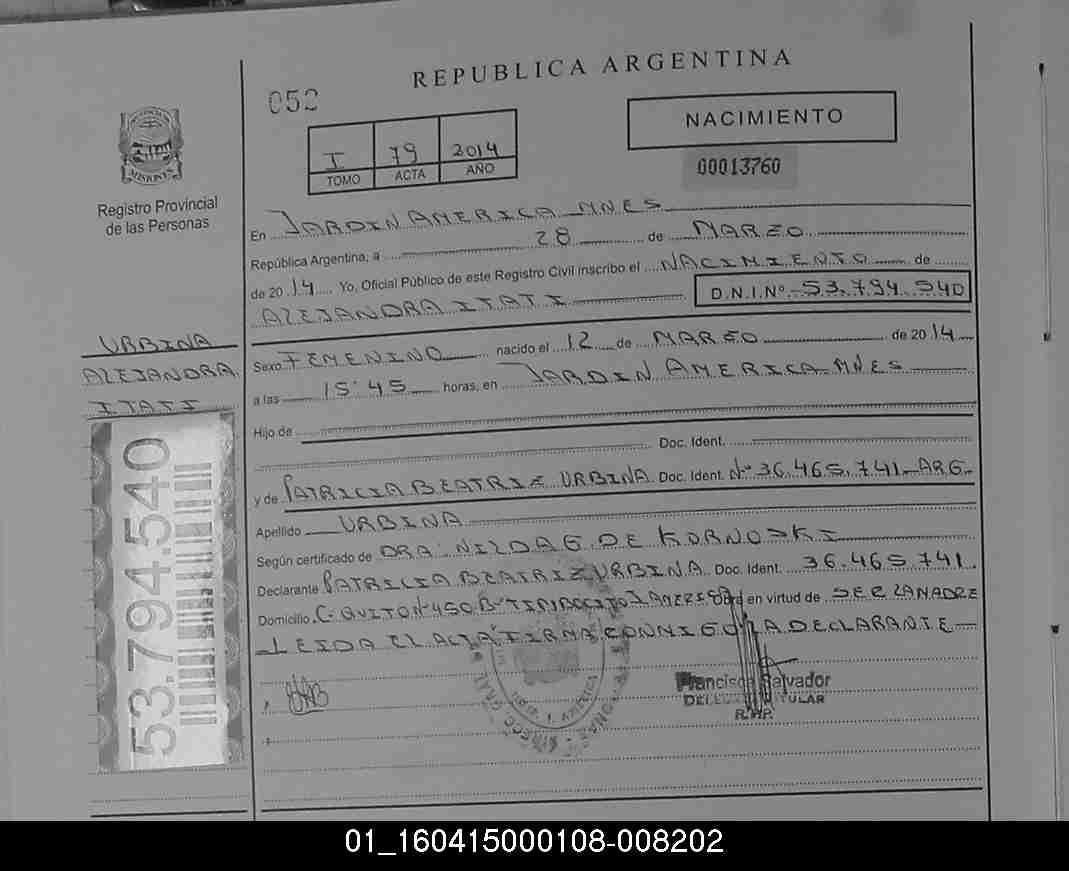 REPUBLICA ARGENTINA
052
NACIMIENTO
I 79 2014
TOMO ACTA AÑO
00013760
MISIONES
Registro Provincial
de las Personas
En JARDIN AMERICA MNES
República Argentina, a 28 de MARZO
de 2014 Yo, Oficial Público de este Registro Civil inscribo el NACIMIENTO de
ALEJANDRA ITATI D.N.I.Nº 53.794.540
URBINA
ALEJANDRA
ITATI
53.794.540
Sexo FEMENINO nacido el 12 de MARZO de 2014
a las 15:45 horas, en JARDIN AMERICA MNES
Hijo de
Doc. Ident.
y de PATRICIA BEATRIZ URBINA Doc. Ident. Nº 36.465.741 ARG.
Apellido URBINA
Según certificado de DRA. NILDA G. DE
Declarante PATRICIA BEATRIZ URBINA Doc. Ident. 36.465.741.
Domicilio C. QUITO Nº 450 en virtud de SER LA MADRE
LEIDA EL ACTA FIRMA CONMIGO LA DECLARANTE
Francisco Salvador
TITULAR
01_160415000108-008202